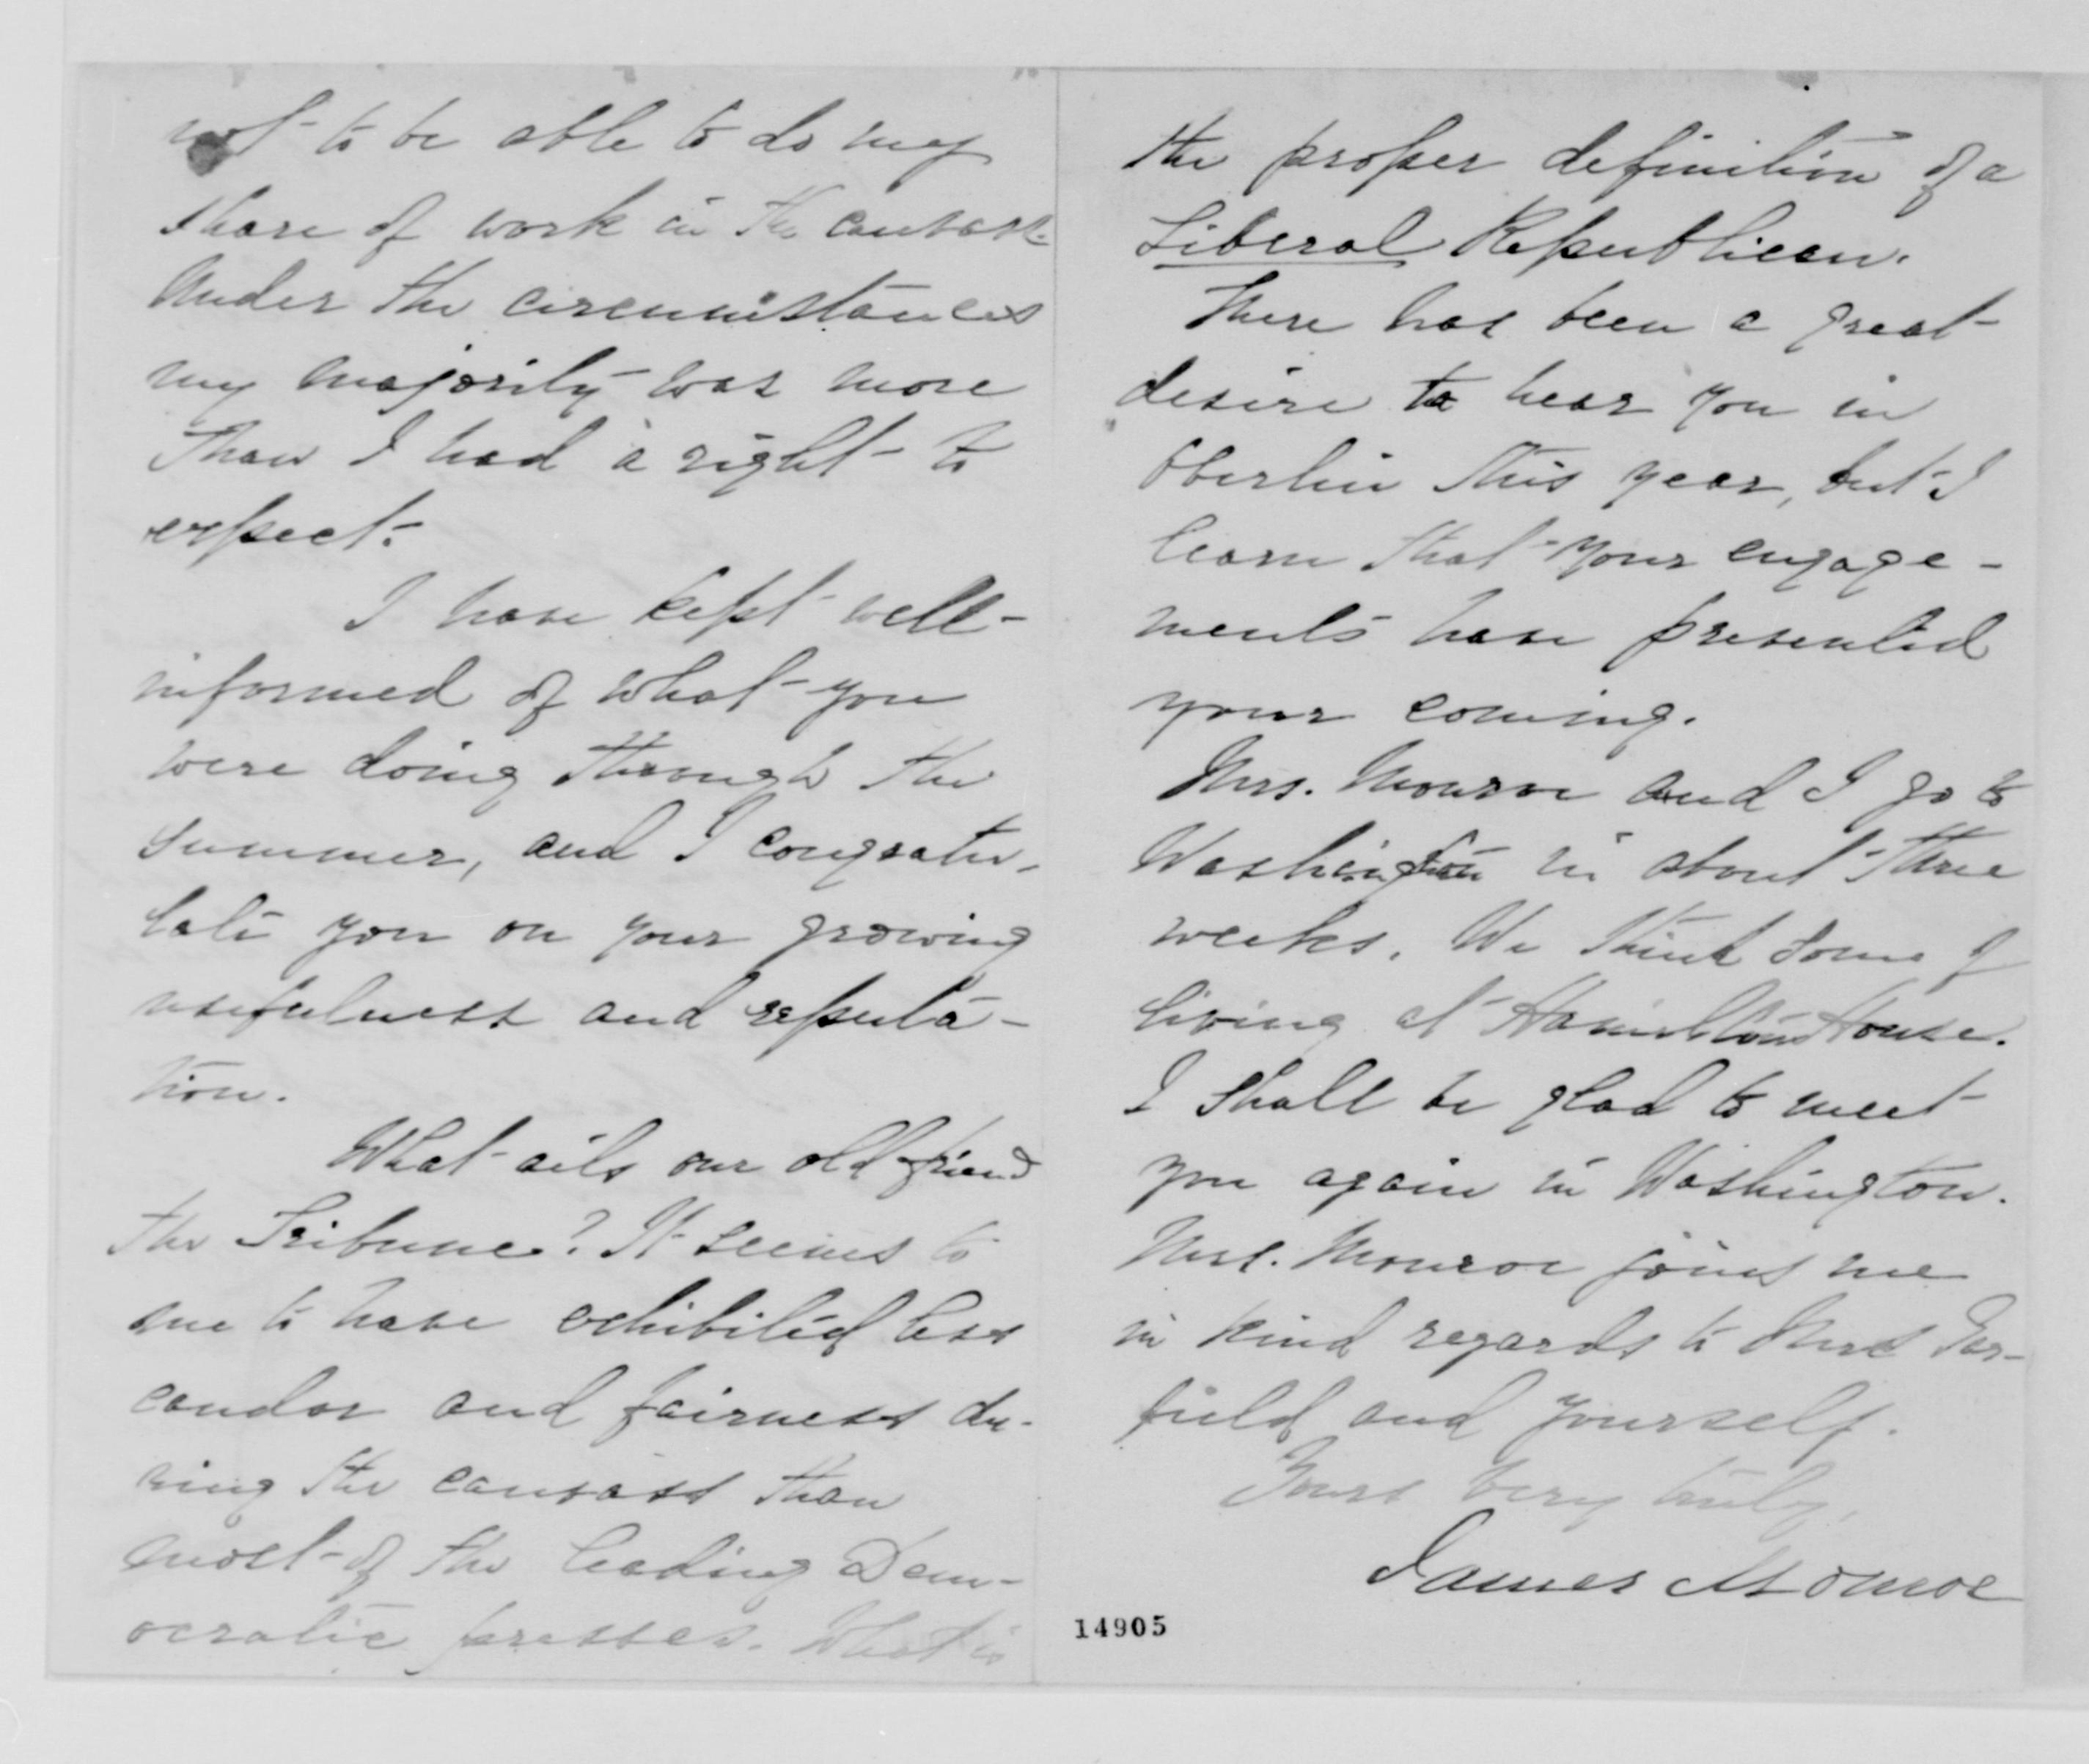 not to be able to do my
share of work in the canvass.
Under the circumstances
my majority was more
than I had a right to
expect.
I have kept well-
informed of what you
were doing through the
summer, and I congratu-
late you on your growing
usefulness and reputa-
tion.
What ails our old friend
the Tribune? It seems to
me to have exhibited less
candor and fairness du-
ring the canvass than
most of the leading Dem-
ocratic presses. What is
the proper definition of a
Liberal Republican.
There has been a great
desire to hear you in
Oberlin this year, but I
learn that your engage-
ments have prevented
your coming.
Mrs. Monroe and I go to
Washington in about three
weeks. We think some of
living at Hamilton House.
I shall be glad to meet
you again in Washington.
Mrs. Monroe joins me
in kind regards to Mrs Gar-
field and yourself.
Yours very truly,
James Monroe
14905